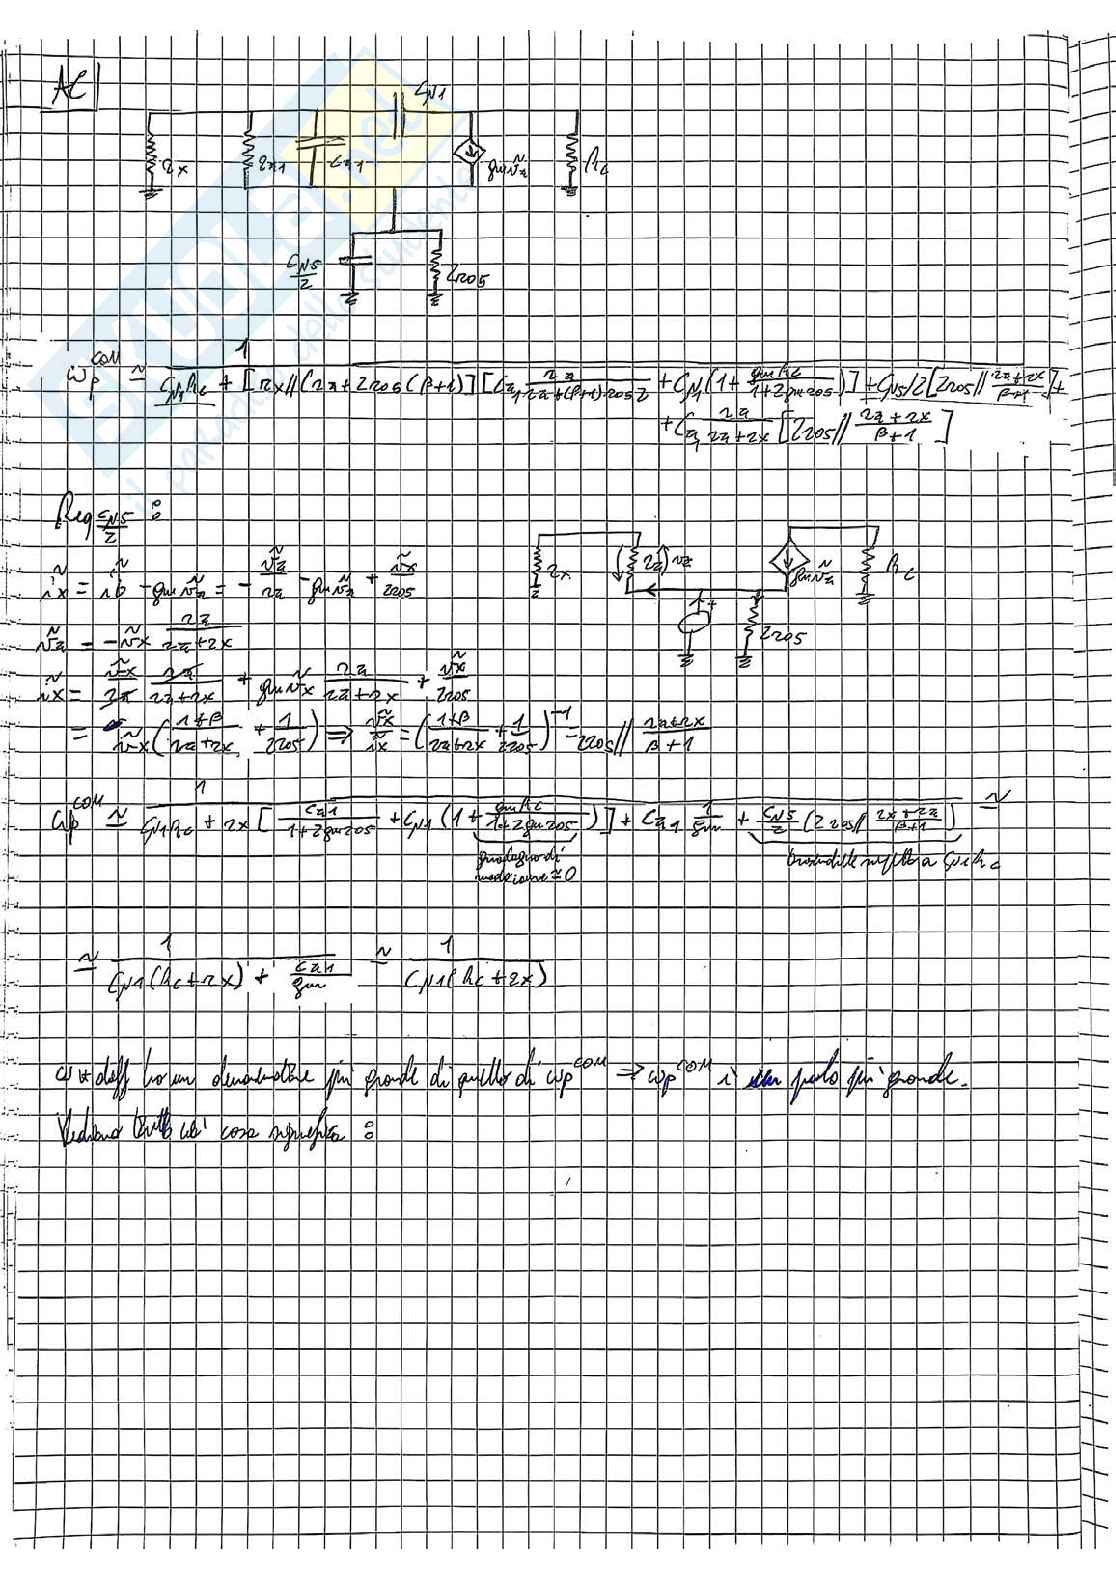 AC
Cμ1
rx rπ1 Cπ1 gm ṽπ Rc
Cμ5/2 2ro5
ωp^COM ≃ 1 / ( Cμ1 Rc + [rx//(rπ+2ro5(β+1))] [Cπ1 rπ/(rπ+(β+1)·ro5 2) + Cμ1(1+ gmRc/(1+2gmro5))] + Cμ5/2 [2ro5// (rπ+rx)/(β+1)] +
+ Cπ1 rπ/(rπ+rx) [2ro5// (rπ+rx)/(β+1)]
Req Cμ5/2 :
ĩx = ĩb - gm ṽπ = - ṽπ/rπ - gm ṽπ + ṽx/2ro5
rx rπ ṽπ gm ṽπ Rc
ṽπ = - ṽx rπ/(rπ+rx)
2ro5
ĩx = ṽx/rπ rπ/(rπ+rx) + gm ṽx rπ/(rπ+rx) + ṽx/2ro5
= ṽx ( (1+β)/(rπ+rx) + 1/2ro5 ) ⇒ ṽx/ĩx = ( (1+β)/(rπ+rx) + 1/2ro5 )^-1 = 2ro5 // (rπ+rx)/(β+1)
ωp^COM ≃ 1 / ( Cμ1Rc + rx [ Cπ1/(1+2gmro5) + Cμ1 (1+ gmRc/(1+2gmro5)) ] + Cπ1 1/gm + Cμ5/2 (2ro5// (rx+rπ)/(β+1)) ) ≃
guadagno di
modo comune ≃ 0
trascurabile rispetto a Cμ1Rc
≃ 1 / ( Cμ1(Rc+rx) + Cπ1/gm ) ≃ 1 / ( Cμ1(Rc+rx) )
diff ha un denominatore più grande di quello di ωp^COM ⇒ ωp^COM è un polo più grande.
Vediamo tutto ciò cosa significa :